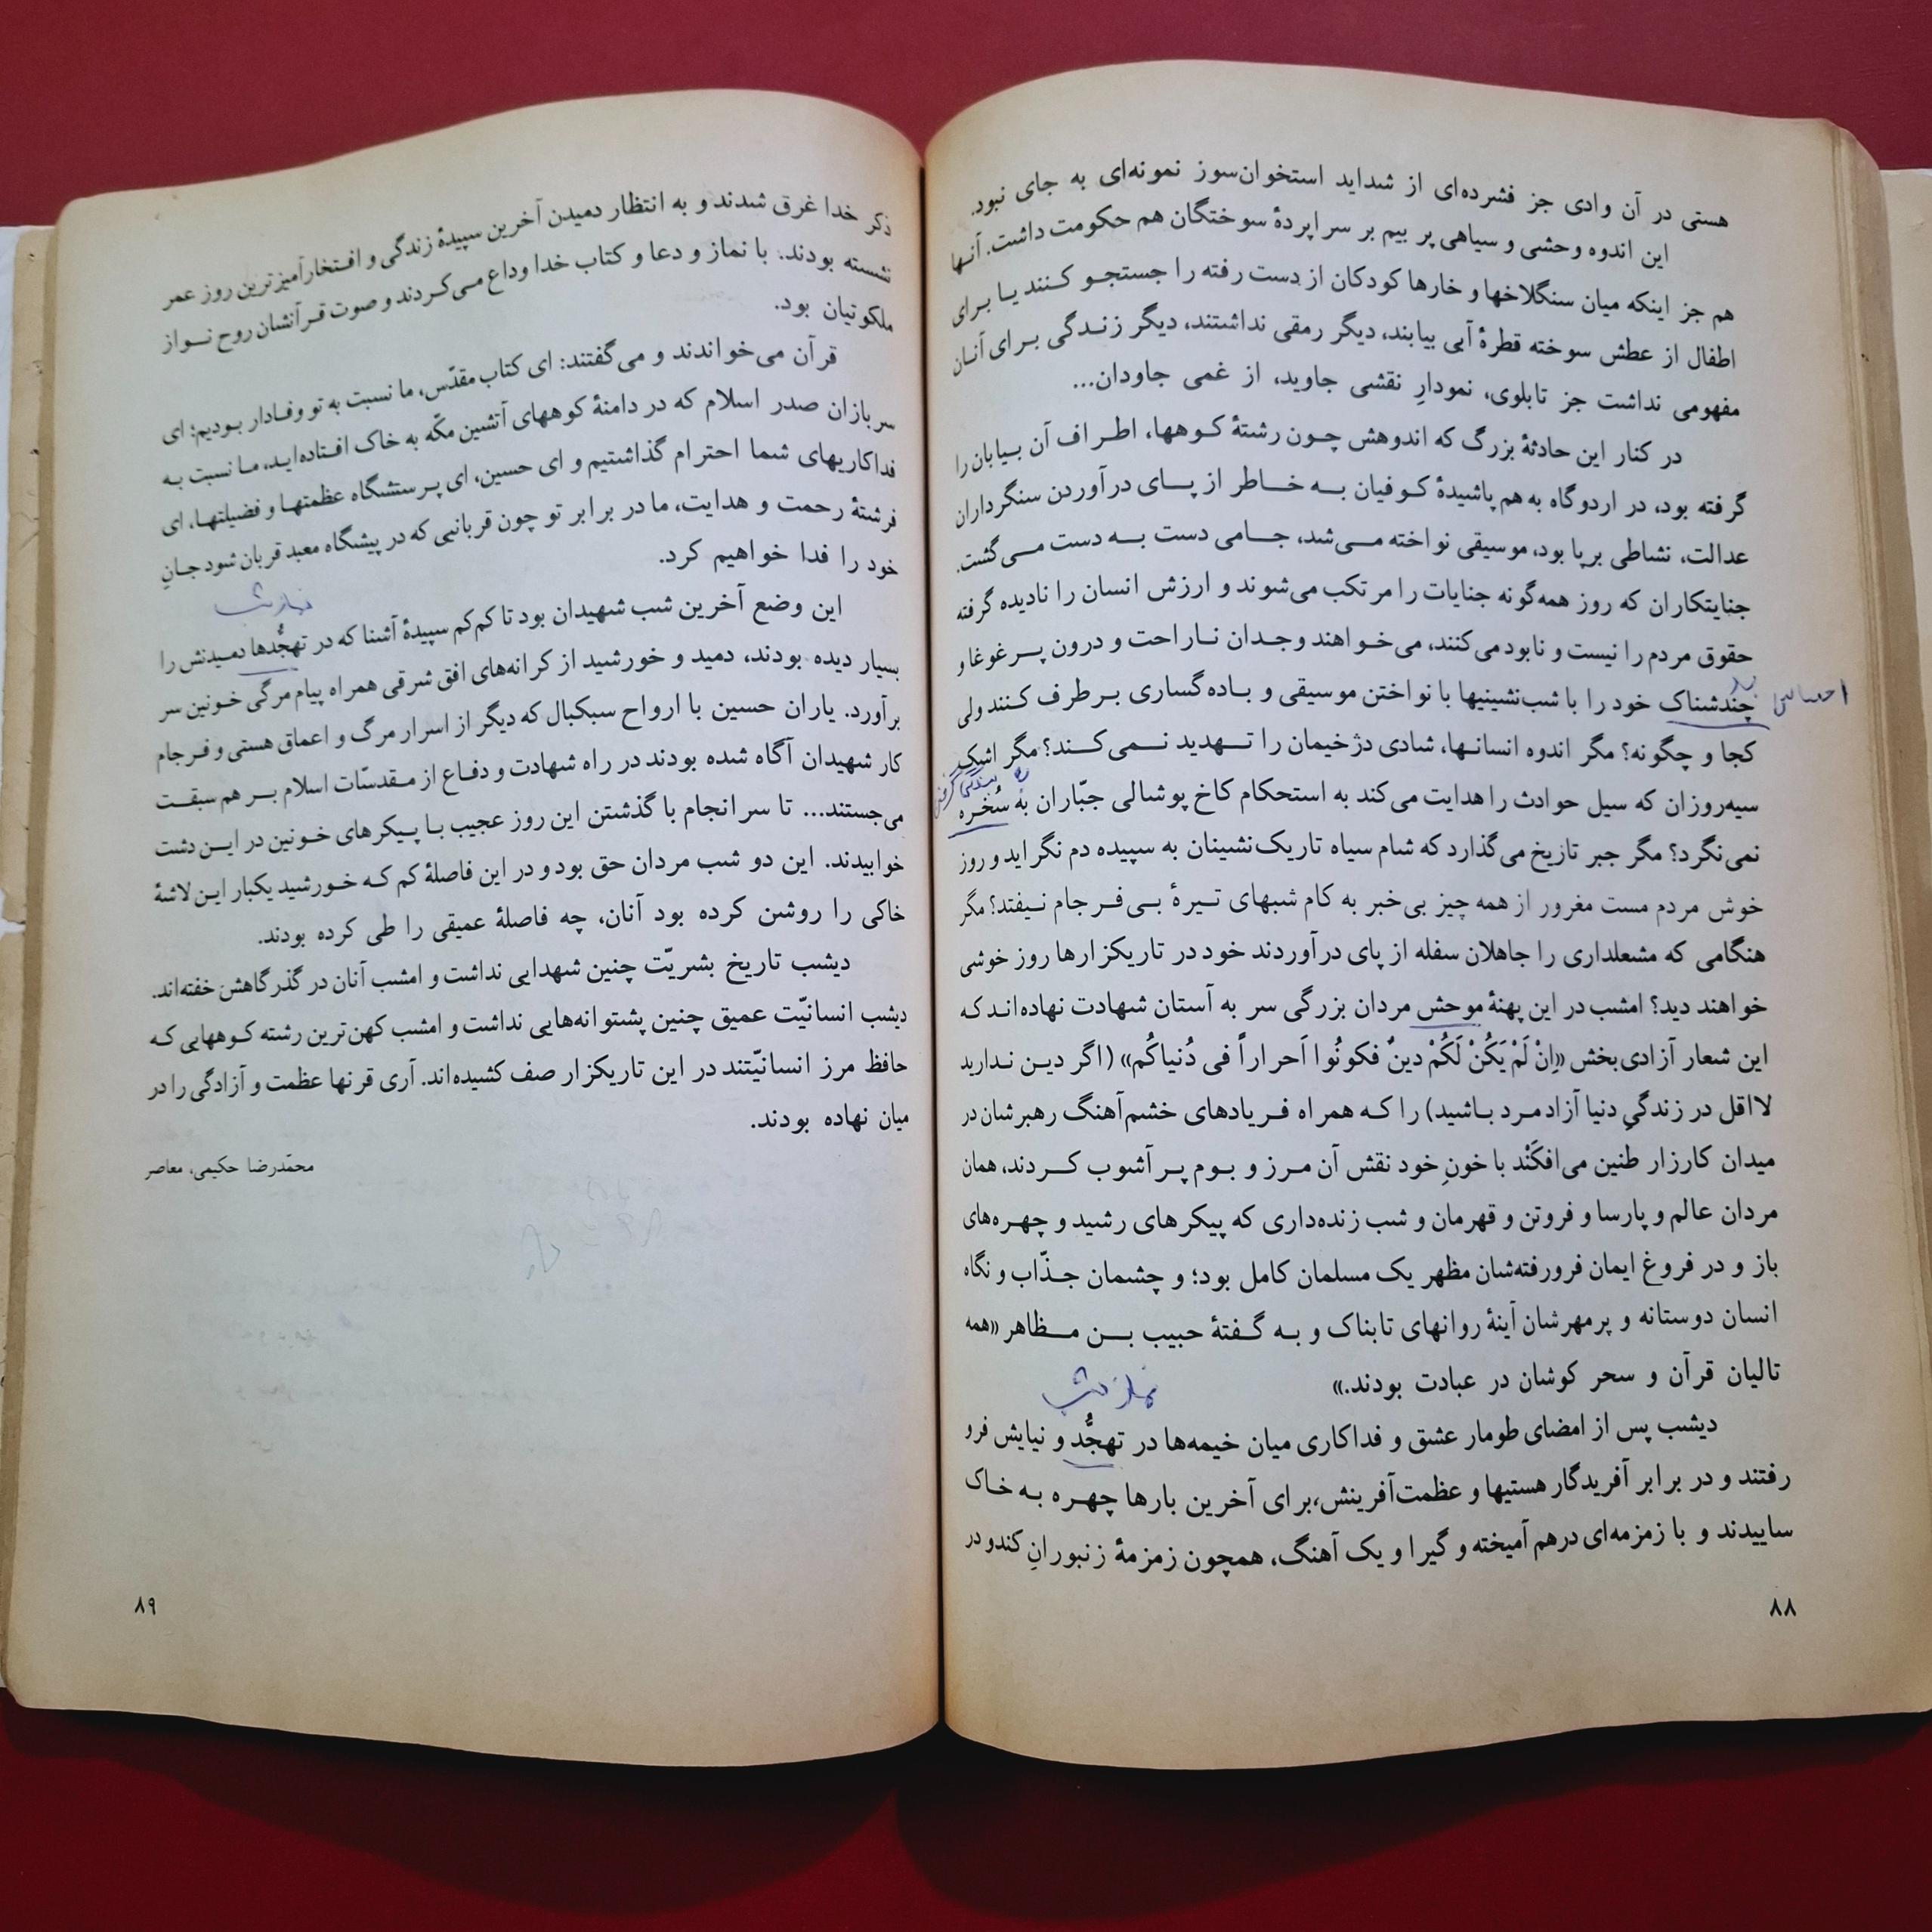 هستی در آن وادی جز فشرده‌ای از شداید استخوان‌سوز نمونه‌ای به جای نبود.
این اندوه وحشی و سیاهی پر بیم بر سراپردهٔ سوختگان هم حکومت داشت. آنها
هم جز اینکه میان سنگلاخها و خارها کودکان از دست رفته را جستجو کنند یا برای
اطفال از عطش سوخته قطرهٔ آبی بیابند، دیگر رمقی نداشتند، دیگر زندگی برای آنان
مفهومی نداشت جز تابلوی، نمودارِ نقشی جاوید، از غمی جاودان...
در کنار این حادثهٔ بزرگ که اندوهش چون رشتهٔ کوهها، اطراف آن بیابان را
گرفته بود، در اردوگاه به هم پاشیدهٔ کوفیان به خاطر از پای درآوردن سنگرداران
عدالت، نشاطی برپا بود، موسیقی نواخته می‌شد، جامی دست به دست می‌گشت.
جنایتکاران که روز همه‌گونه جنایات را مرتکب می‌شوند و ارزش انسان را نادیده گرفته
حقوق مردم را نیست و نابود می‌کنند، می‌خواهند وجدان ناراحت و درون پرغوغا و
احساس بد
چندشناک خود را با شب‌نشینیها با نواختن موسیقی و باده‌گساری برطرف کنند ولی
کجا و چگونه؟ مگر اندوه انسانها، شادی دژخیمان را تهدید نمی‌کند؟ مگر اشک
سیه‌روزان که سیل حوادث را هدایت می‌کند به استحکام کاخ پوشالی جبّاران به سُخره
نمی‌نگرد؟ مگر جبر تاریخ می‌گذارد که شام سیاه تاریک‌نشینان به سپیده دم نگراید و روز
خوش مردم مست مغرور از همه چیز بی‌خبر به کام شبهای تیرهٔ بی‌فرجام نیفتد؟ مگر
هنگامی که مشعلداری را جاهلان سفله از پای درآوردند خود در تاریکزارها روز خوشی
خواهند دید؟ امشب در این پهنهٔ موحش مردان بزرگی سر به آستان شهادت نهاده‌اند که
این شعار آزادی‌بخش «اِنْ لَمْ یَکُنْ لَکُمْ دینٌ فکونُوا اَحراراً فی دُنیاکُم» (اگر دین ندارید
لااقل در زندگیِ دنیا آزادمرد باشید) را که همراه فریادهای خشم‌آهنگ رهبرشان در
میدان کارزار طنین می‌افکَنْد با خونِ خود نقش آن مرز و بوم پرآشوب کردند، همان
مردان عالم و پارسا و فروتن و قهرمان و شب زنده‌داری که پیکرهای رشید و چهره‌های
باز و در فروغ ایمان فرورفته‌شان مظهر یک مسلمان کامل بود؛ و چشمان جذّاب و نگاه
انسان دوستانه و پرمهرشان آینهٔ روانهای تابناک و به گفتهٔ حبیب بن مظاهر «همه
تالیان قرآن و سحر کوشان در عبادت بودند.»
نماز شب
دیشب پس از امضای طومار عشق و فداکاری میان خیمه‌ها در تهجُّد و نیایش فرو
رفتند و در برابر آفریدگار هستیها و عظمت‌آفرینش،برای آخرین بارها چهره به خاک
ساییدند و با زمزمه‌ای درهم آمیخته و گیرا و یک آهنگ، همچون زمزمهٔ زنبورانِ کندو در
۸۸
ذکر خدا غرق شدند و به انتظار دمیدن آخرین سپیدهٔ زندگی و افتخارآمیزترین روز عمر
نشسته بودند. با نماز و دعا و کتاب خدا وداع می‌کردند و صوت قرآنشان روح نواز
ملکوتیان بود.
قرآن می‌خواندند و می‌گفتند: ای کتاب مقدّس، ما نسبت به تو وفادار بودیم؛ ای
سربازان صدر اسلام که در دامنهٔ کوههای آتشین مکّه به خاک افتاده‌اید، ما نسبت به
فداکاریهای شما احترام گذاشتیم و ای حسین، ای پرستشگاه عظمتها و فضیلتها، ای
فرشتهٔ رحمت و هدایت، ما در برابر تو چون قربانیی که در پیشگاه معبد قربان شود جانِ
خود را فدا خواهیم کرد.
نماز شب
این وضع آخرین شب شهیدان بود تا کم‌کم سپیدهٔ آشنا که در تهجُّدها دمیدنش را
بسیار دیده بودند، دمید و خورشید از کرانه‌های افق شرقی همراه پیام مرگی خونین سر
برآورد. یاران حسین با ارواح سبکبال که دیگر از اسرار مرگ و اعماق هستی و فرجام
کار شهیدان آگاه شده بودند در راه شهادت و دفاع از مقدسّات اسلام بر هم سبقت
می‌جستند... تا سرانجام با گذشتن این روز عجیب با پیکرهای خونین در این دشت
خوابیدند. این دو شب مردان حق بود و در این فاصلهٔ کم که خورشید یکبار این لاشهٔ
خاکی را روشن کرده بود آنان، چه فاصلهٔ عمیقی را طی کرده بودند.
دیشب تاریخ بشریّت چنین شهدایی نداشت و امشب آنان در گذرگاهش خفته‌اند.
دیشب انسانیّت عمیق چنین پشتوانه‌هایی نداشت و امشب کهن‌ترین رشته کوههایی که
حافظ مرز انسانیّتند در این تاریکزار صف کشیده‌اند. آری قرنها عظمت و آزادگی را در
میان نهاده بودند.
محمّدرضا حکیمی، معاصر
۸۹